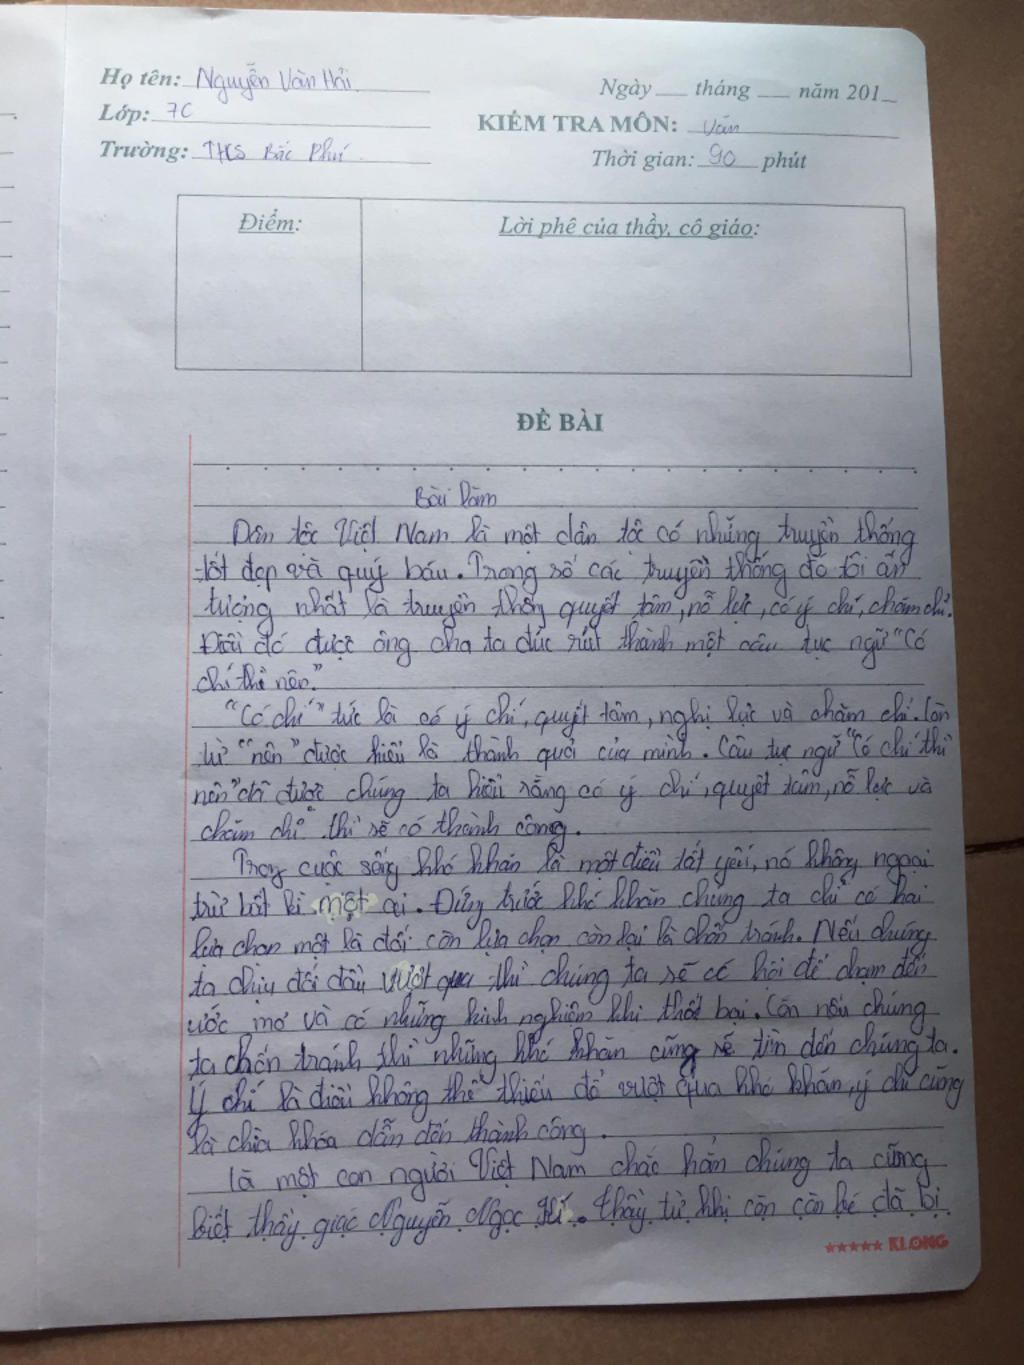 Họ tên: Nguyễn Văn Hải
Ngày ___ tháng ___ năm 201_
Lớp: 7C
KIỂM TRA MÔN: Văn
Trường: THCS Bắc Phú
Thời gian: 90 phút
Điểm:
Lời phê của thầy, cô giáo:
ĐỀ BÀI
Bài làm
Dân tộc Việt Nam là một dân tộc có những truyền thống
tốt đẹp và quý báu. Trong số các truyền thống đó tôi ấn
tượng nhất là truyền thống quyết tâm, nỗ lực, có ý chí, chăm chỉ.
Điều đó được ông cha ta đúc rút thành một câu tục ngữ "Có
chí thì nên."
"Có chí" tức là có ý chí, quyết tâm, nghị lực và chăm chỉ. Còn
từ "nên" được hiểu là thành quả của mình. Câu tục ngữ "Có chí thì
nên" chỉ được chúng ta hiểu rằng có ý chí, quyết tâm, nỗ lực và
chăm chỉ thì sẽ có thành công.
Trong cuộc sống khó khăn là một điều tất yếu, nó không ngoại
trừ bất kì một ai. Đứng trước khó khăn chúng ta chỉ có hai
lựa chọn một là đối còn lựa chọn còn lại là chốn tránh. Nếu chúng
ta chịu đối đầu vượt qua thì chúng ta sẽ có hội để chạm đến
ước mơ và có những kinh nghiệm khi thất bại. Còn nếu chúng
ta chốn tránh thì những khó khăn cũng sẽ tìm đến chúng ta.
Ý chí là điều không thể thiếu để vượt qua khó khăn, ý chí cũng
là chìa khóa dẫn đến thành công.
Là một con người Việt Nam chắc hẳn chúng ta cũng
biết thầy giác Nguyễn Ngọc Kí. Thầy từ khi còn còn bé đã bị
★★★★★ KLONG